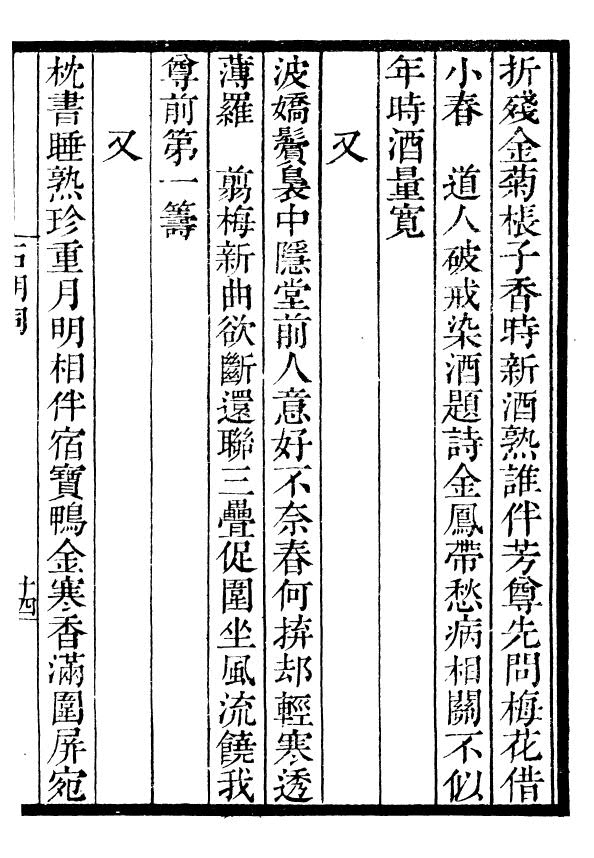 折殘金菊棖子香時新酒熟誰伴芳尊先問梅花借
小春　道人破戒染酒題詩金鳳帶愁病相關不似
年時酒量寬
又
波嬌鬢裊中隱堂前人意好不奈春何拚却輕寒透
薄羅　翦梅新曲欲斷還聯三疊促圍坐風流饒我
尊前第一籌
又
枕書睡熟珍重月明相伴宿寶鴨金寒香滿圍屏宛
十四